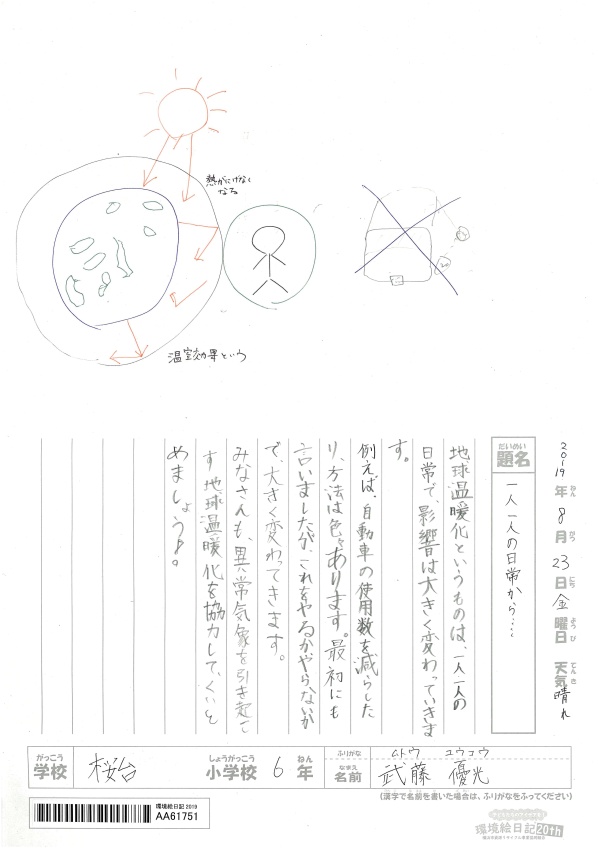 熱がにげなく
なる
温室効果という
2019年ねん 8月がつ 23日にち 金曜日ようび 天気てんき 晴れ
題名だいめい
一人一人の日常から…
地球温暖化というものは、一人一人の
日常で、影響は大きく変わっていきま
す。
例えば、自動車の使用数を減らした
り、方法は色々あります。最初にも
言いましたが、これをやるかやらないか
で、大きく変わってきます。
みなさんも、異常気象を引き起こ
す地球温暖化を協力して、くいと
めましょう。
学校がっこう 桜台 小学校しょうがっこう 6年ねん
ふりがな ムトウ ユウコウ
名前なまえ 武藤 優光
(漢字で名前を書いた場合は、ふりがなをふってください)
環境絵日記2019
AA61751
環境絵日記20th